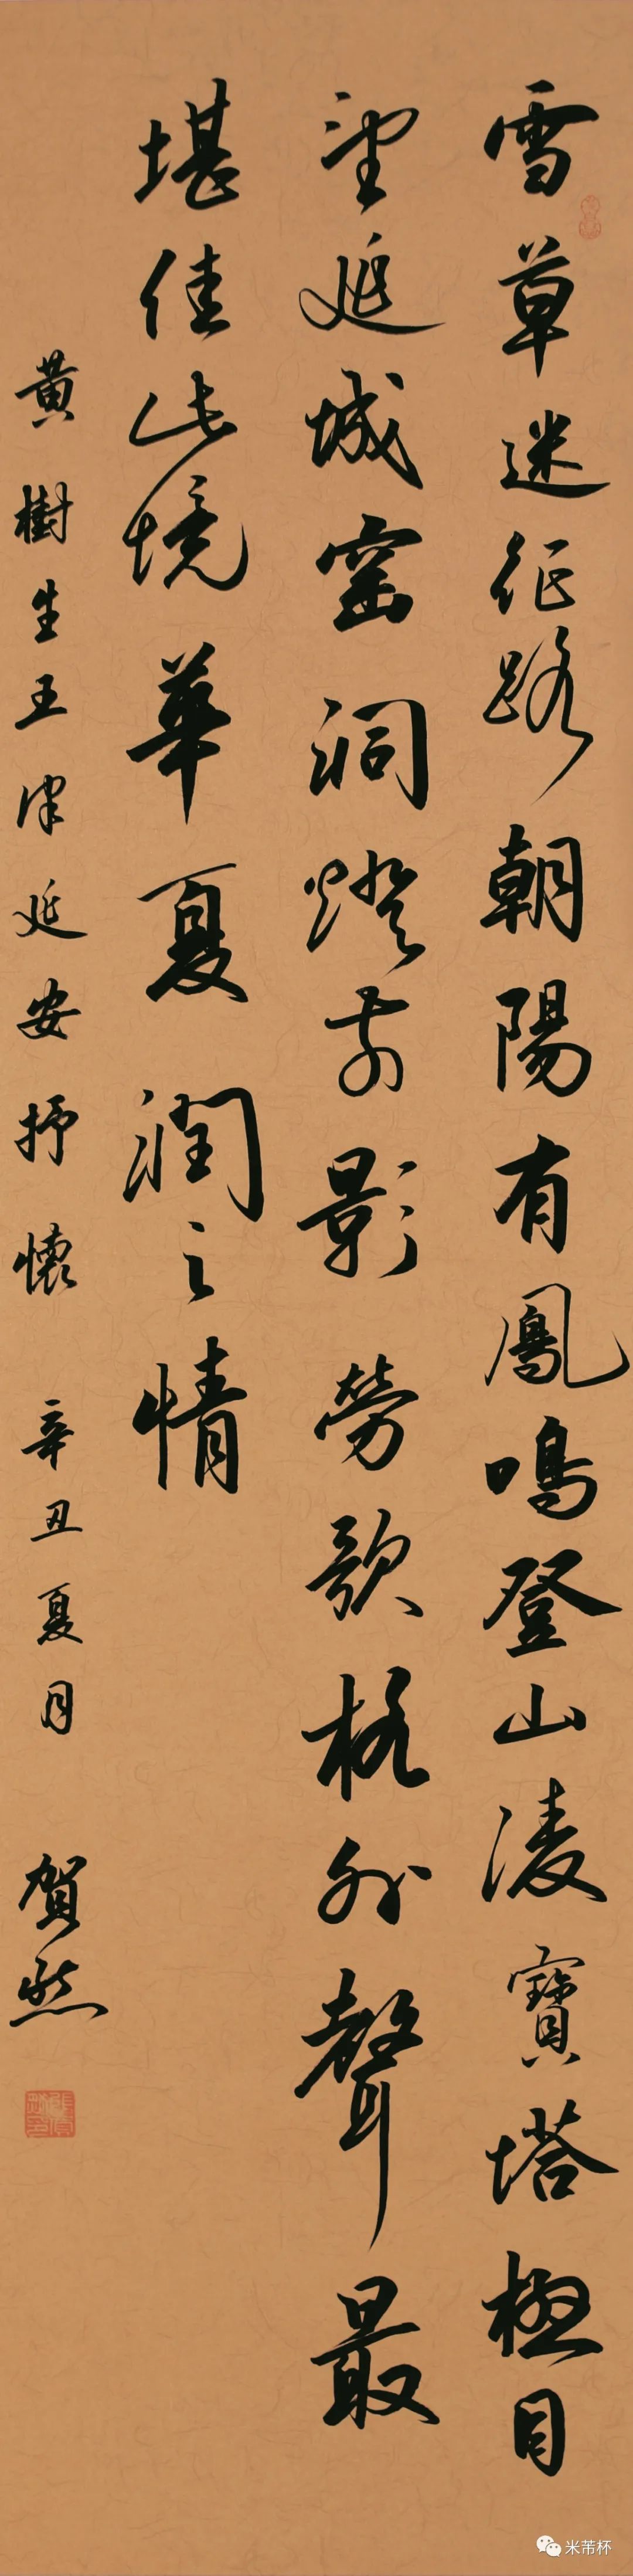 雪草迷征路朝陽有鳳鳴登山凌寶塔極目
望延城窑洞燈前影勞歌格外聲最
堪佳此境華夏潤之情
黃樹生王津延安抒懷 辛丑夏月 賀然
米芾杯